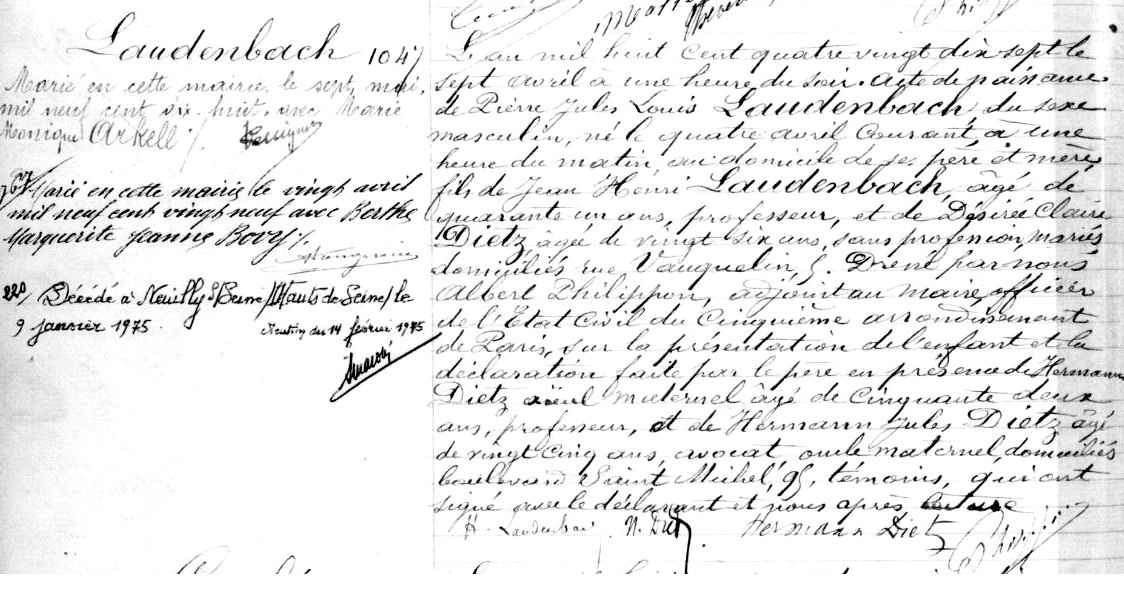 Laudenbach 1047
Marié en cette mairie le sept mai
mil neuf cent dix huit avec Marie
Monique Arkell ./.
767 Marié en cette mairie le vingt avril
mil neuf cent vingt neuf avec Berthe
Marguerite Jeanne Bovy ./.
220/ Décédé à Neuilly s/Seine /Hauts de Seine/ le
9 janvier 1975.
Mention du 14 février 1975
L'an mil huit cent quatre vingt dix sept le
sept avril à une heure du soir. Acte de naissance
de Pierre Jules Louis Laudenbach, du sexe
masculin, né le quatre avril courant à une
heure du matin au domicile de ses père et mère,
fils de Jean Henri Laudenbach, âgé de
quarante un ans, professeur, et de Désirée Claire
Dietz âgée de vingt six ans, sans profession mariés
domiciliés rue Vauquelin, 5. Dressé par nous
Albert Philippon, adjoint au maire, officier
de l'Etat Civil du Cinquième arrondissement
de Paris, sur la présentation de l'enfant et la
déclaration faite par le père en présence de Hermann
Dietz aïeul maternel âgé de cinquante deux
ans, professeur, et de Hermann Jules Dietz âgé
de vingt cinq ans, avocat oncle maternel, domiciliés
boulevard Saint Michel, 95, témoins, qui ont
signé avec le déclarant et nous après lecture
H. Laudenbach H. Dietz Hermann Dietz